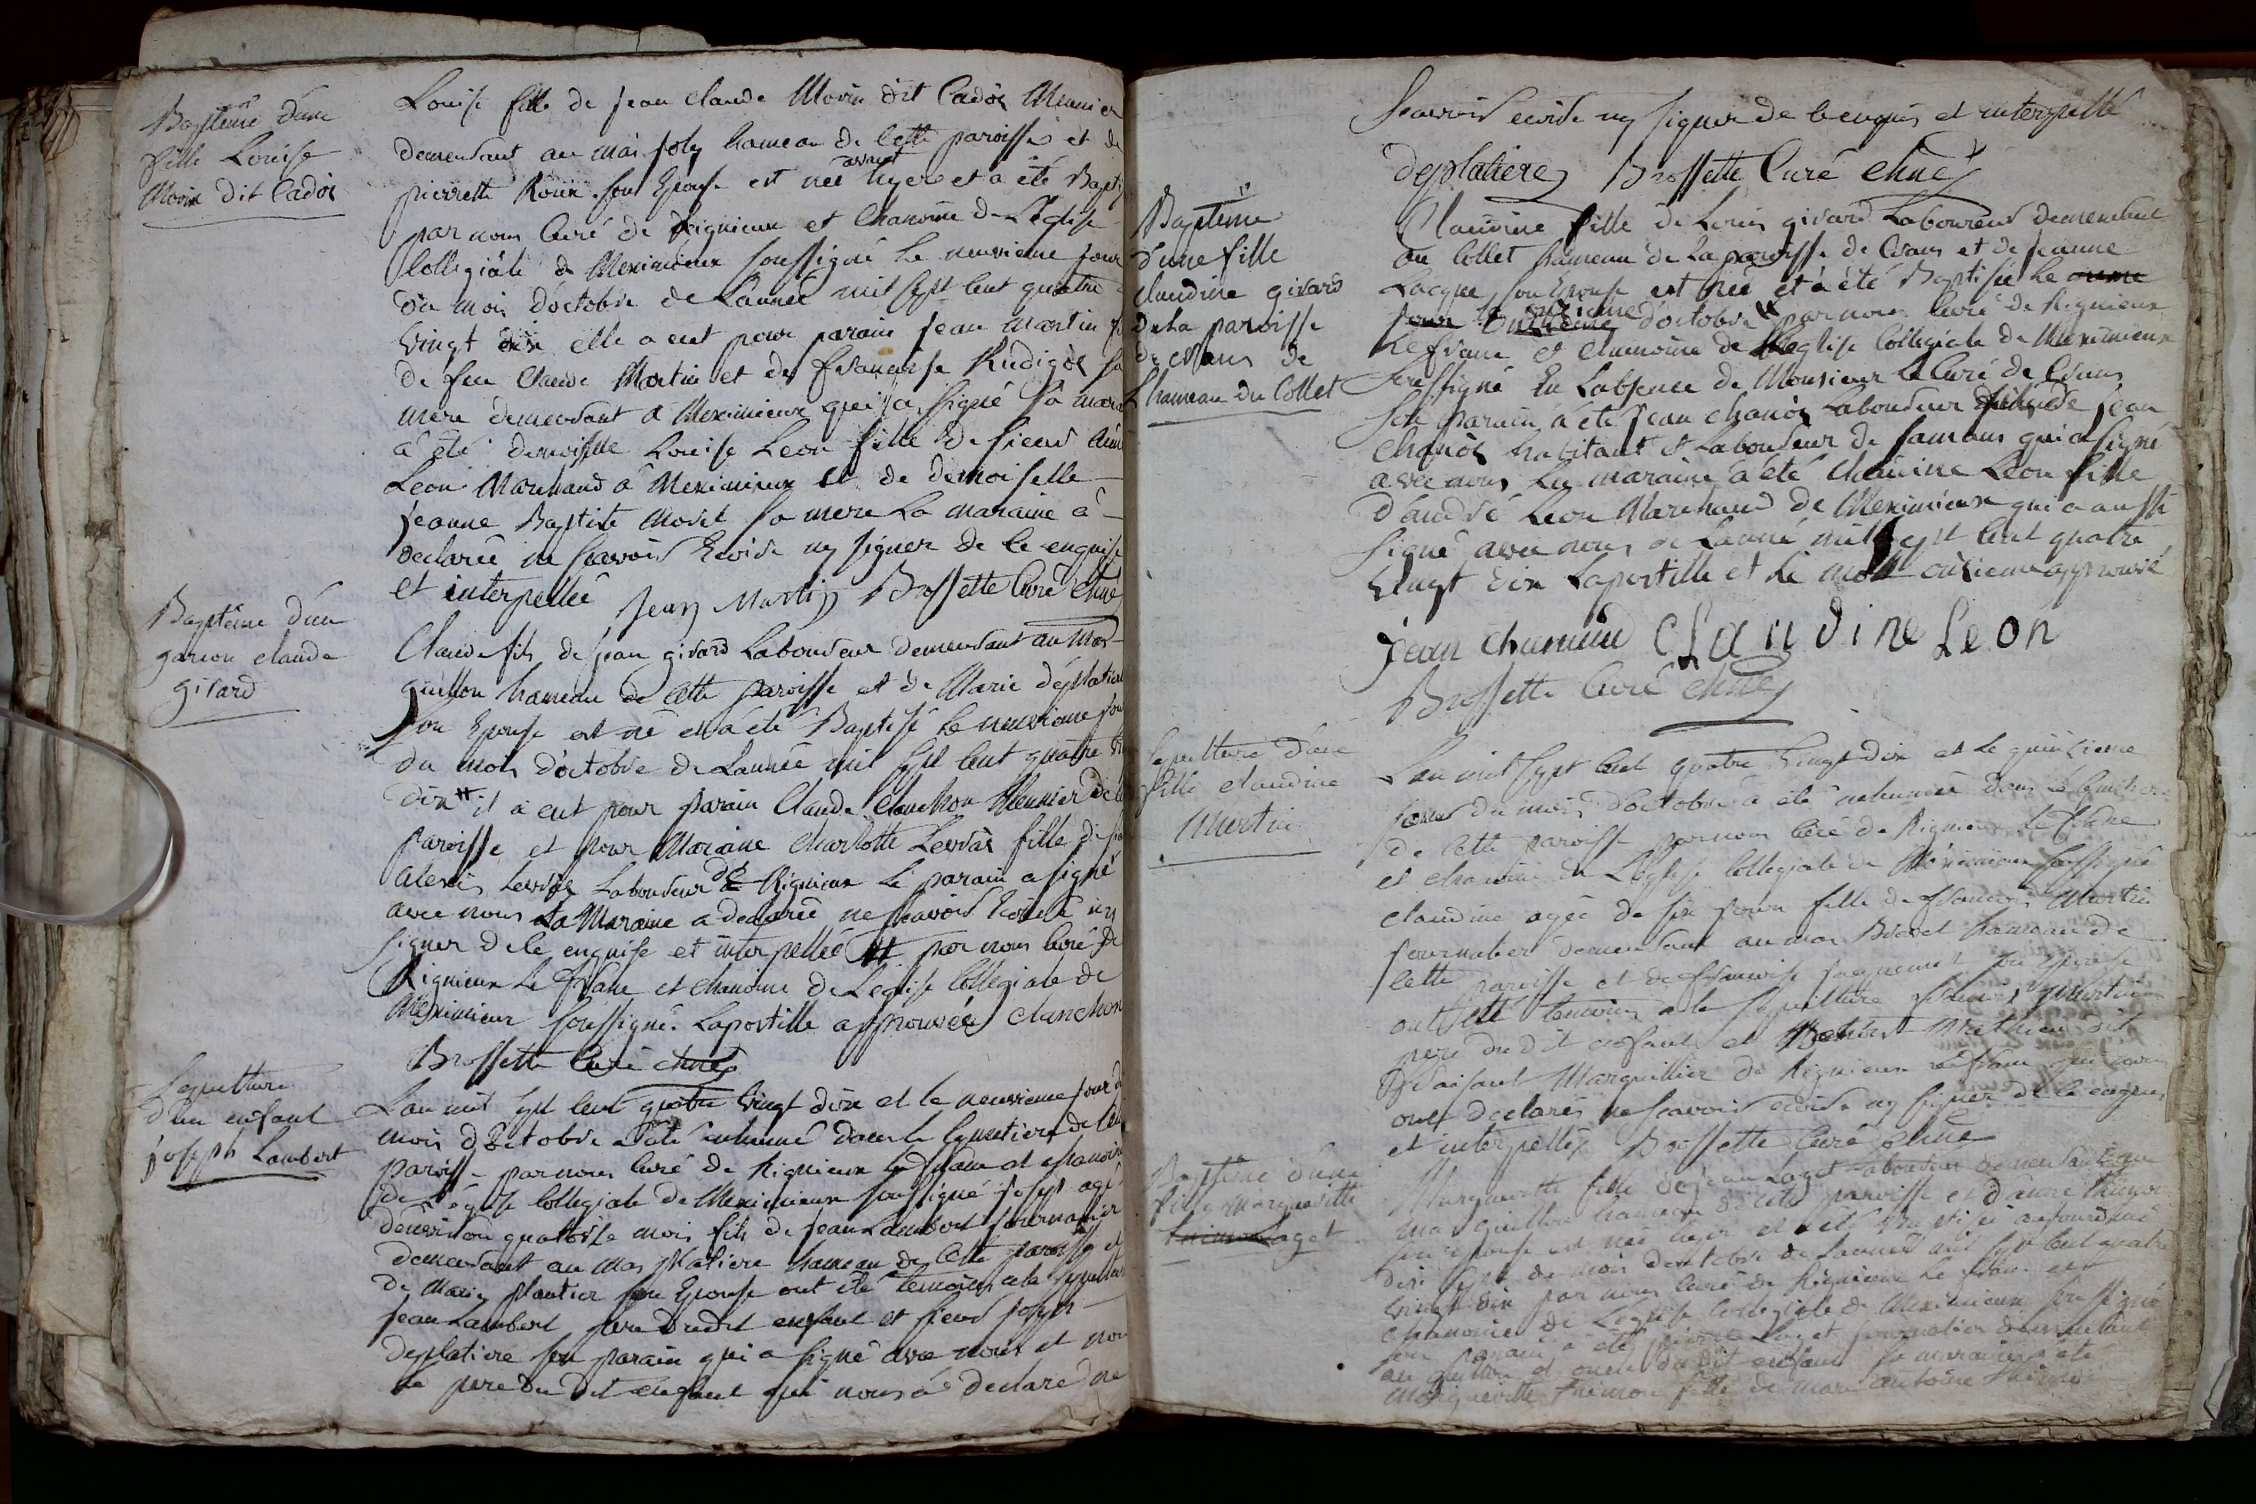 Baptême d'une
fille Louise
Morin dit Cadòr
Louise fille de jean claude Morin dit Cadòr Meunier
demeurant au mas joly hameau de cette paroisse et de
pierrette Roux son Epouse est neé avant hyer et a été Bapti
par nous Curé de Rignieux et chanoine de L'église
Collegiâle de Meximieux soussigné le neuvieme jour
du mois d'octobre de L'année mil sept cent quatre
vingt dix elle a eut pour parain jean Martin
de feu claude Martin et de françoise Rudigòz sa
mere demeurant a Meximieux qui a signé sa mara
a été demoiselle Louise Leon fille de sieur
Leon Marchand â Meximieux et de demoiselle
jeanne Baptiste Morel sa mere La maraine â
declareé ne scavoir Ecrire ny signer de ce enquise
et interpelleé jean Martin Brossette Curé chne
Baptême d'un
garcon claude
girard
Claude fils de jean girard Laboureur demeurant au mas
guillon hameau de cette paroisse et de Marie déplatiere
son Epouse est né et a été Baptisé le neuvieme jour
du mois d'octobre de L'année mil sept cent quatre
dix # il a eut pour parain Claude clanchon Meunier de
paroisse et pour Maraine charlotte fille de
alexis Laboureur de Rignieux Le parain a signé
avec nous La Maraine a declareé ne scavoir Ecrire ny
signer de ce enquise et interpelleé # par nous Curé de
Rignieux Le franc et chanoine de L'eglise Collegiale de
Meximieux soussigné Lapostille approuveé clanchon
Brossette Curé chne
Sepulture
d'un enfant
joseph Lambert
L'an mil sept cent quatre vingt dix et le neuvieme jour du
mois d'octobre a été inhumé dans le cymetiere de cette
paroisse par nous Curé de Rignieux Le franc et chanoine
de L'église Collegiale de Meximieux soussigné joseph agé
denviron quatorze mois fils de jean Lambert journalier
demeurant au mas platiere hameau de cette paroisse et
de Marie plantier son Epouse ont été temoins a la sepulture
jean Lambert pere dudit enfant et sieur joseph
deplatiere son parain qui a signé avec nous et non
le pere du dit enfant qui nous a declaré ne
scavoir ecrire ny signer de ce enquis et interpellé
deplatiere Brossette Curé chne
Baptême
d'une fille
claudine girard
de la paroisse
de crans de
L'hameau du Collet
Claudine fille de Louis girard Laboureur demeurant
au Collet hameau de La paroisse de Crans et de jeanne
Lacque son Epouse est neé et a été Baptiseé le
jour onzieme d'octobre # par nous Curé de Rignieux
Le franc et chanoine de L'eglise Collegiale de Meximieux
soussigné En L'absence de Monsieur le Curé de Crans
Son parain a été jean Laboureur fils de jean
habitant et Laboureur de samans qui a signé
avec nous La maraine a été claudine Leon fille
d'andré Leon Marchand de Meximieux qui a aussi
signé avec nous # de L'anné mil sept cent quatre
vingt dix Lapostille et le mot onzieme approuvé
jean chanund Claudine Leon
Brossette Curé chne
Sepulture d'une
fille claudine
Martin
L'an mil sept cent quatre vingt dix et le quinzieme
jour du mois d'octobre a été inhumeé dans le cimetiere
de cette paroisse par nous Curé de Rignieux Le franc
et chanoine de L'Eglise Collegiale de Meximieux soussigné
claudine ageé de six jours fille de francois Martin
journalier demeurant au mas Bredet hameau de
cette paroisse et de francoise jaquemet son Epouse
ont été temoins a la sepulture francois Martin
pere du dit enfant et Mathieu dit
plaisant Marguillier de Rignieux Le franc qui
ont declarés ne scavoir ecrire ny signer de ce enquis
et interpellés Brossette Curé chne
Baptême d'une
fille marguerite
Laget
Marguerite fille de jean Laget Laboureur demeurant au
mas guillon hameau de cette paroisse et d'anne
son epouse est neé hyer et a été Baptiseé aujourd'huÿ
dix sept du mois d'octobre de L'anneé mil sept cent quatre
vingt dix par nous Curé de Rignieux Le franc et
chanoine de L'église Collegiale de Meximieux soussigné
son parain a été pierre Laget journalier demeurant
au guillon et oncle du dit enfant sa maraine a été
Marguerite Thimon fille de marc antoine Thimon